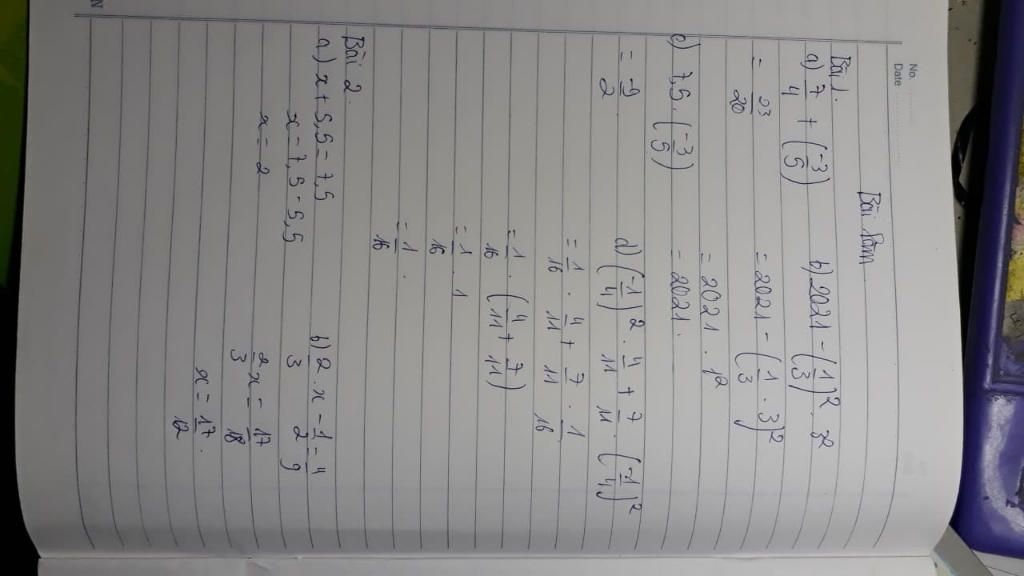 No.
Date
Bài làm
Bài 1.
a) 7/4 + (-3/5)
= 23/20
b) 2021 - (1/3)² . 3²
= 2021 - (1/3 . 3)²
= 2021 . 1²
= 2021.
c) 7,5 . (-3/5)
= -9/2
d) (-1/4)² . 4/11 + 7/11 . (-1/4)²
= 1/16 . 4/11 + 7/11 . 1/16
= 1/16 . (4/11 + 7/11)
= 1/16 . 1
= 1/16 .
Bài 2.
a) x + 5,5 = 7,5
x = 7,5 - 5,5
x = 2
b) 2/3 . x - 1/2 = 4/9
2/3 x = 17/18
x = 17/12 .